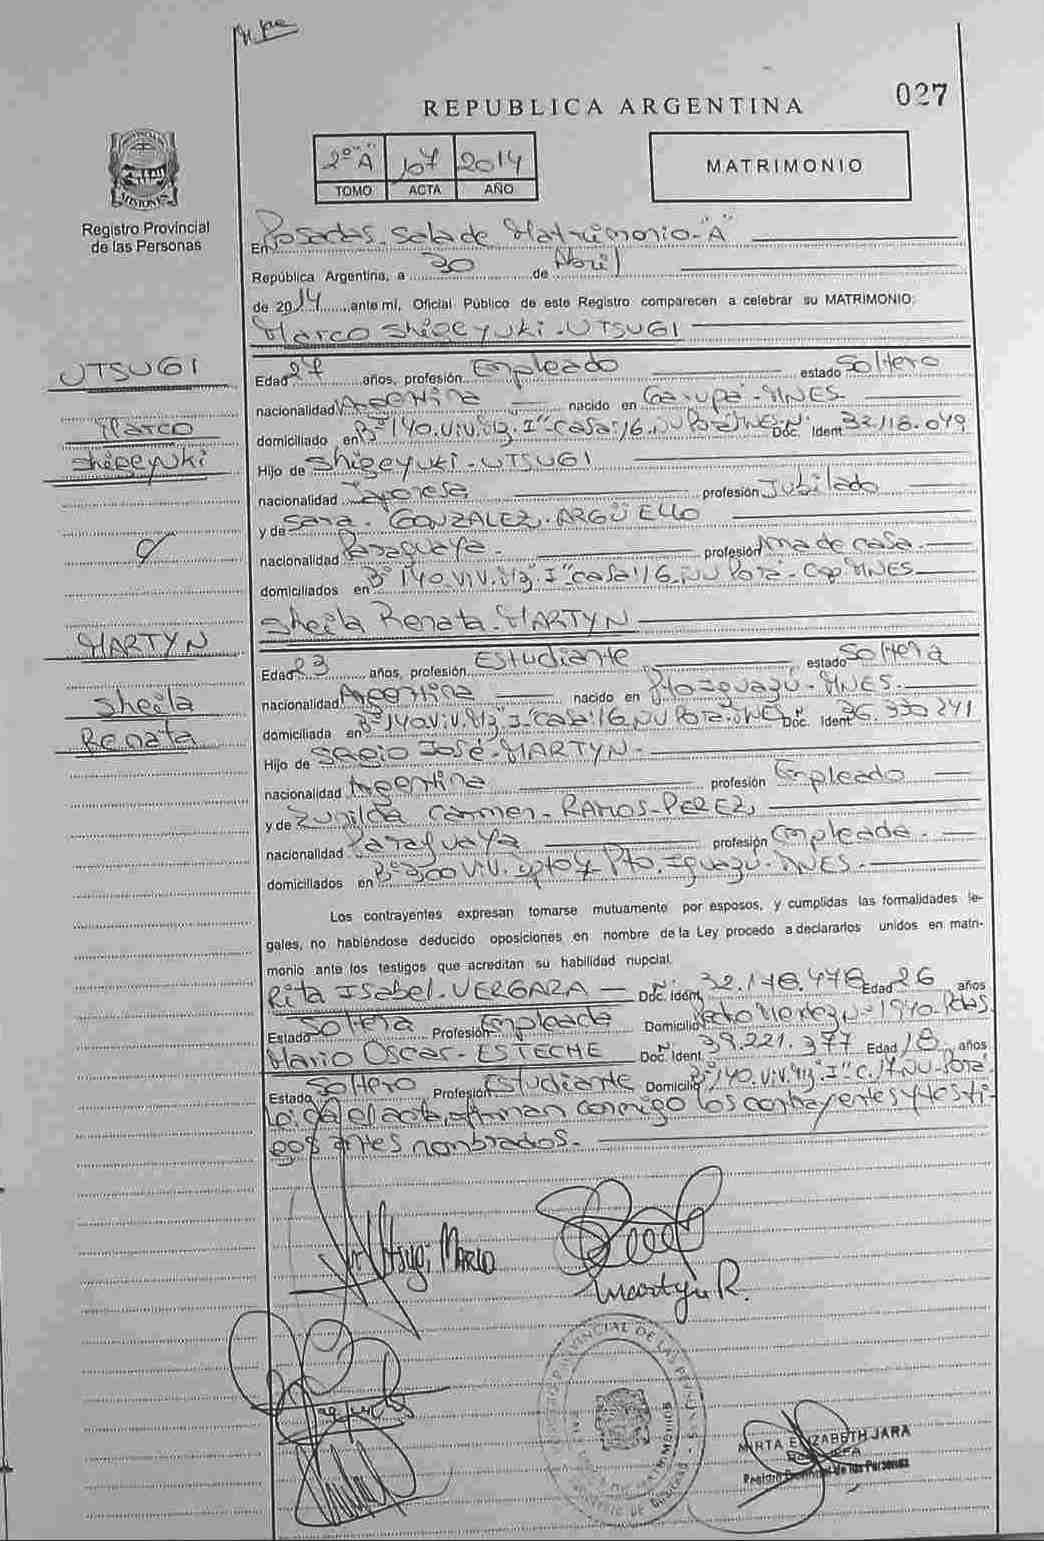 027
REPUBLICA ARGENTINA
2º"A" 107 2014
TOMO ACTA AÑO
MATRIMONIO
MISIONES
Registro Provincial
de las Personas
En Posadas-Sala de Matrimonio-"A"
República Argentina, a 30 de Abril
de 2014 ante mí, Oficial Público de este Registro comparecen a celebrar su MATRIMONIO:
Marco Shigeyuki-UTSUGI
UTSUGI
Marco
Shigeyuki
Edad 27 años, profesión Empleado estado Soltero
nacionalidad Argentina nacido en Garupá-MNES.
domiciliado en Bº 140.Viv. "I" Casa:16. Ñu Porá Doc. Ident 32.118.049
Hijo de Shigeyuki-UTSUGI
nacionalidad Japonesa profesión Jubilado
y de Sara. GONZALEZ-ARGÜELLO
nacionalidad Paraguaya. profesión Ama de casa.
domiciliados en Bº 140 Viv. "I" Casa:16. Ñu Porá-Cap. MNES
Sheila Renata-MARTYN
MARTYN
Sheila
Renata
Edad 23 años, profesión Estudiante estado Soltera
nacionalidad Argentina nacido en Pto Iguazú-MNES.
domiciliada en Bº 140 Viv. "I" Casa:16. Ñu Porá Doc. Ident 36.330 241
Hijo de Sergio José-MARTYN-
nacionalidad Argentina profesión Empleado
y de Zunilda Carmen-RAMOS-PEREZ,
nacionalidad Paraguaya profesión Empleada.
domiciliados en Bº Viv. Pto. Iguazú-MNES.
Los contrayentes expresan tomarse mutuamente por esposos, y cumplidas las formalidades le-
gales, no habiéndose deducido oposiciones en nombre de la Ley procedo a declararlos unidos en matri-
monio ante los testigos que acreditan su habilidad nupcial.
Rita Isabel-VERGARA Doc. Ident, Edad 26 años
Estado Soltera Profesión Empleada Domicilio
Mario Oscar-ESTECHE Doc. Ident. 39.221.377 Edad 18 años
Estado Soltero Profesión Estudiante Domicilio Bº 140.Viv. "I" Ñu Porá
Leída el acta, firman conmigo los contrayentes y testi-
gos antes nombrados.-
Utsugi Marco
Martyn R.
MIRTA ELIZABETH JARA
Registro Provincial de las Personas